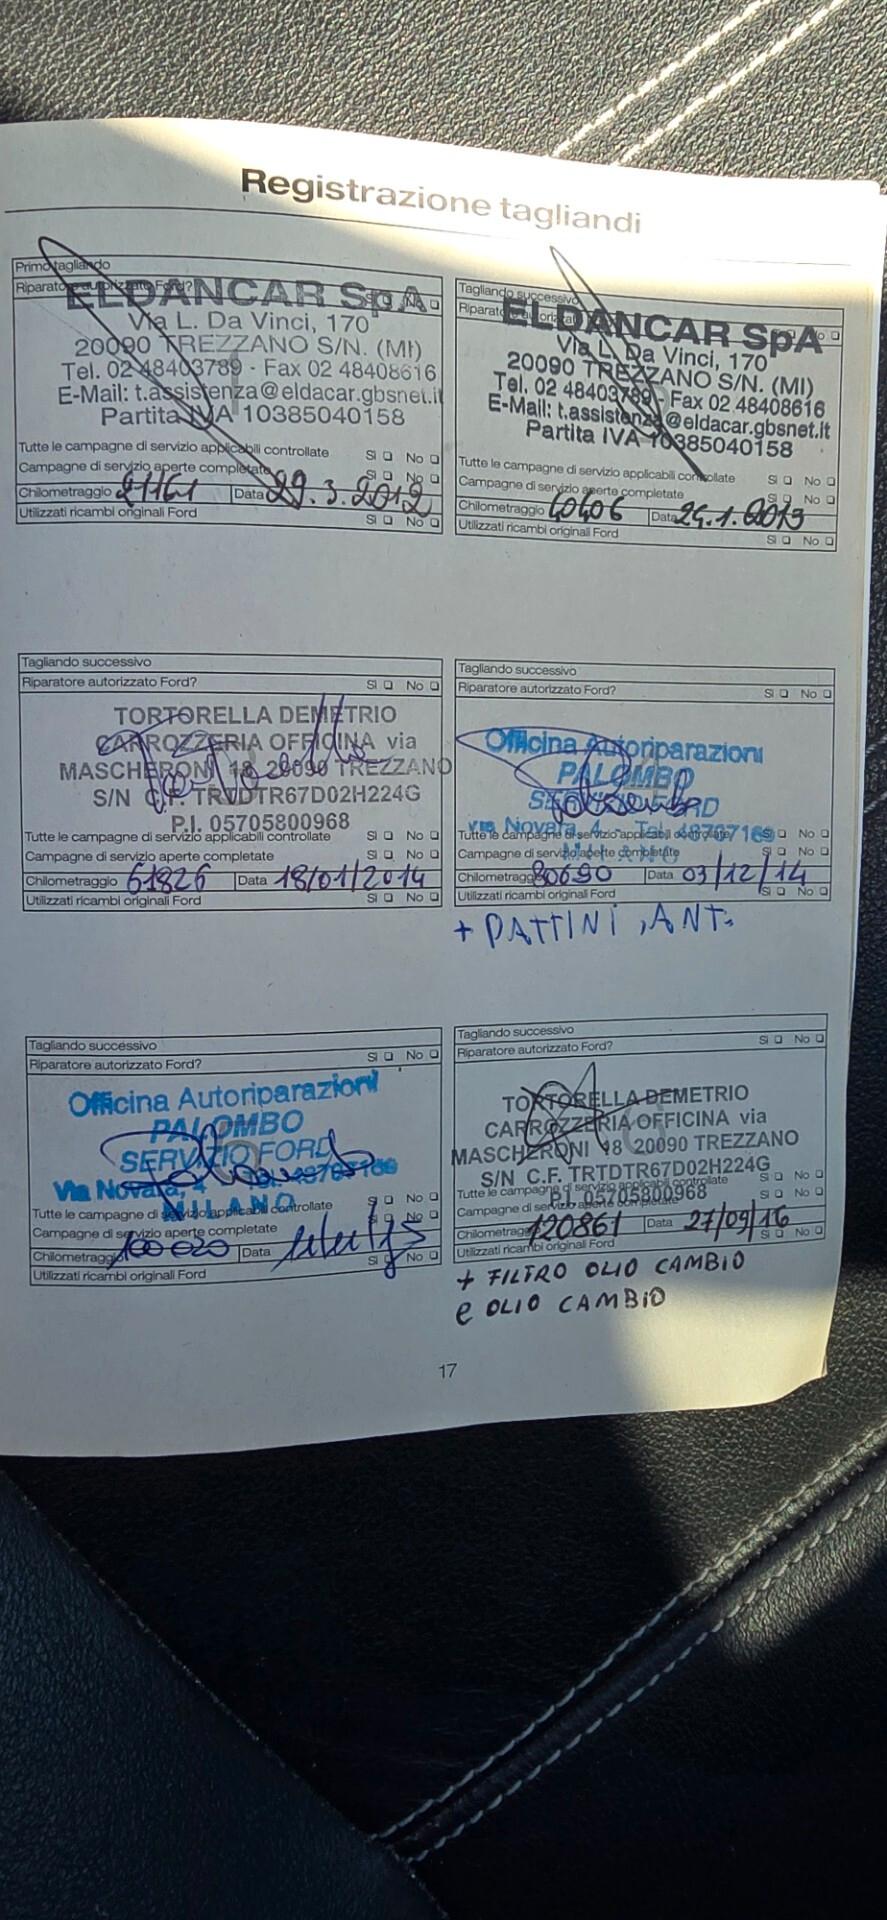 Registrazione tagliandi
Primo tagliando
Riparatore autorizzato Ford?
Sì No
ELDANCAR SpA
Via L. Da Vinci, 170
20090 TREZZANO S/N. (MI)
Tel. 02 48403789 - Fax 02 48408616
E-Mail: t.assistenza@eldacar.gbsnet.it
Partita IVA 10385040158
Tutte le campagne di servizio applicabili controllate Sì No
Campagne di servizio aperte completate Sì No
Chilometraggio 21161 Data 29.3.2012
Utilizzati ricambi originali Ford Sì No
Tagliando successivo
Riparatore autorizzato
No
ELDANCAR SpA
Via L. Da Vinci, 170
20090 TREZZANO S/N. (MI)
Tel. 02 48403789 - Fax 02 48408616
E-Mail: t.assistenza@eldacar.gbsnet.it
Partita IVA 10385040158
Tutte le campagne di servizio applicabili controllate Sì No
Campagne di servizio aperte completate Sì No
Chilometraggio 40406 Data
Utilizzati ricambi originali Ford Sì No
Tagliando successivo
Riparatore autorizzato Ford? Sì No
TORTORELLA DEMETRIO
CARROZZERIA OFFICINA via
MASCHERONI 18 20090 TREZZANO
S/N C.F. TRTDTR67D02H224G
P.I. 05705800968
Tutte le campagne di servizio applicabili controllate Sì No
Campagne di servizio aperte completate Sì No
Chilometraggio 61826 Data 18/01/2014
Utilizzati ricambi originali Ford Sì No
Tagliando successivo
Riparatore autorizzato Ford? Sì No
Officina Autoriparazioni
PALOMBO
SERVIZIO FORD
Via Novara, 4 Tel. 48707169
MILANO
Tutte le campagne di servizio applicabili controllate Sì No
Campagne di servizio aperte completate Sì No
Chilometraggio 80690 Data 03/12/14
Utilizzati ricambi originali Ford Sì No
+ PATTINI, ANT.
Tagliando successivo
Riparatore autorizzato Ford? Sì No
Officina Autoriparazioni
PALOMBO
SERVIZIO FORD
Via Novara, 4 Tel. 48707169
MILANO
Tutte le campagne di servizio applicabili controllate Sì No
Campagne di servizio aperte completate Sì No
Chilometraggio 100020 Data
Utilizzati ricambi originali Ford Sì No
Tagliando successivo
Riparatore autorizzato Ford? Sì No
TORTORELLA DEMETRIO
CARROZZERIA OFFICINA via
MASCHERONI 18 20090 TREZZANO
S/N C.F. TRTDTR67D02H224G
P.I. 05705800968
Tutte le campagne di servizio applicabili controllate Sì No
Campagne di servizio aperte completate Sì No
Chilometraggio 120861 Data 27/09/16
Utilizzati ricambi originali Ford Sì No
+ FILTRO OLIO CAMBIO
e OLIO CAMBIO
17